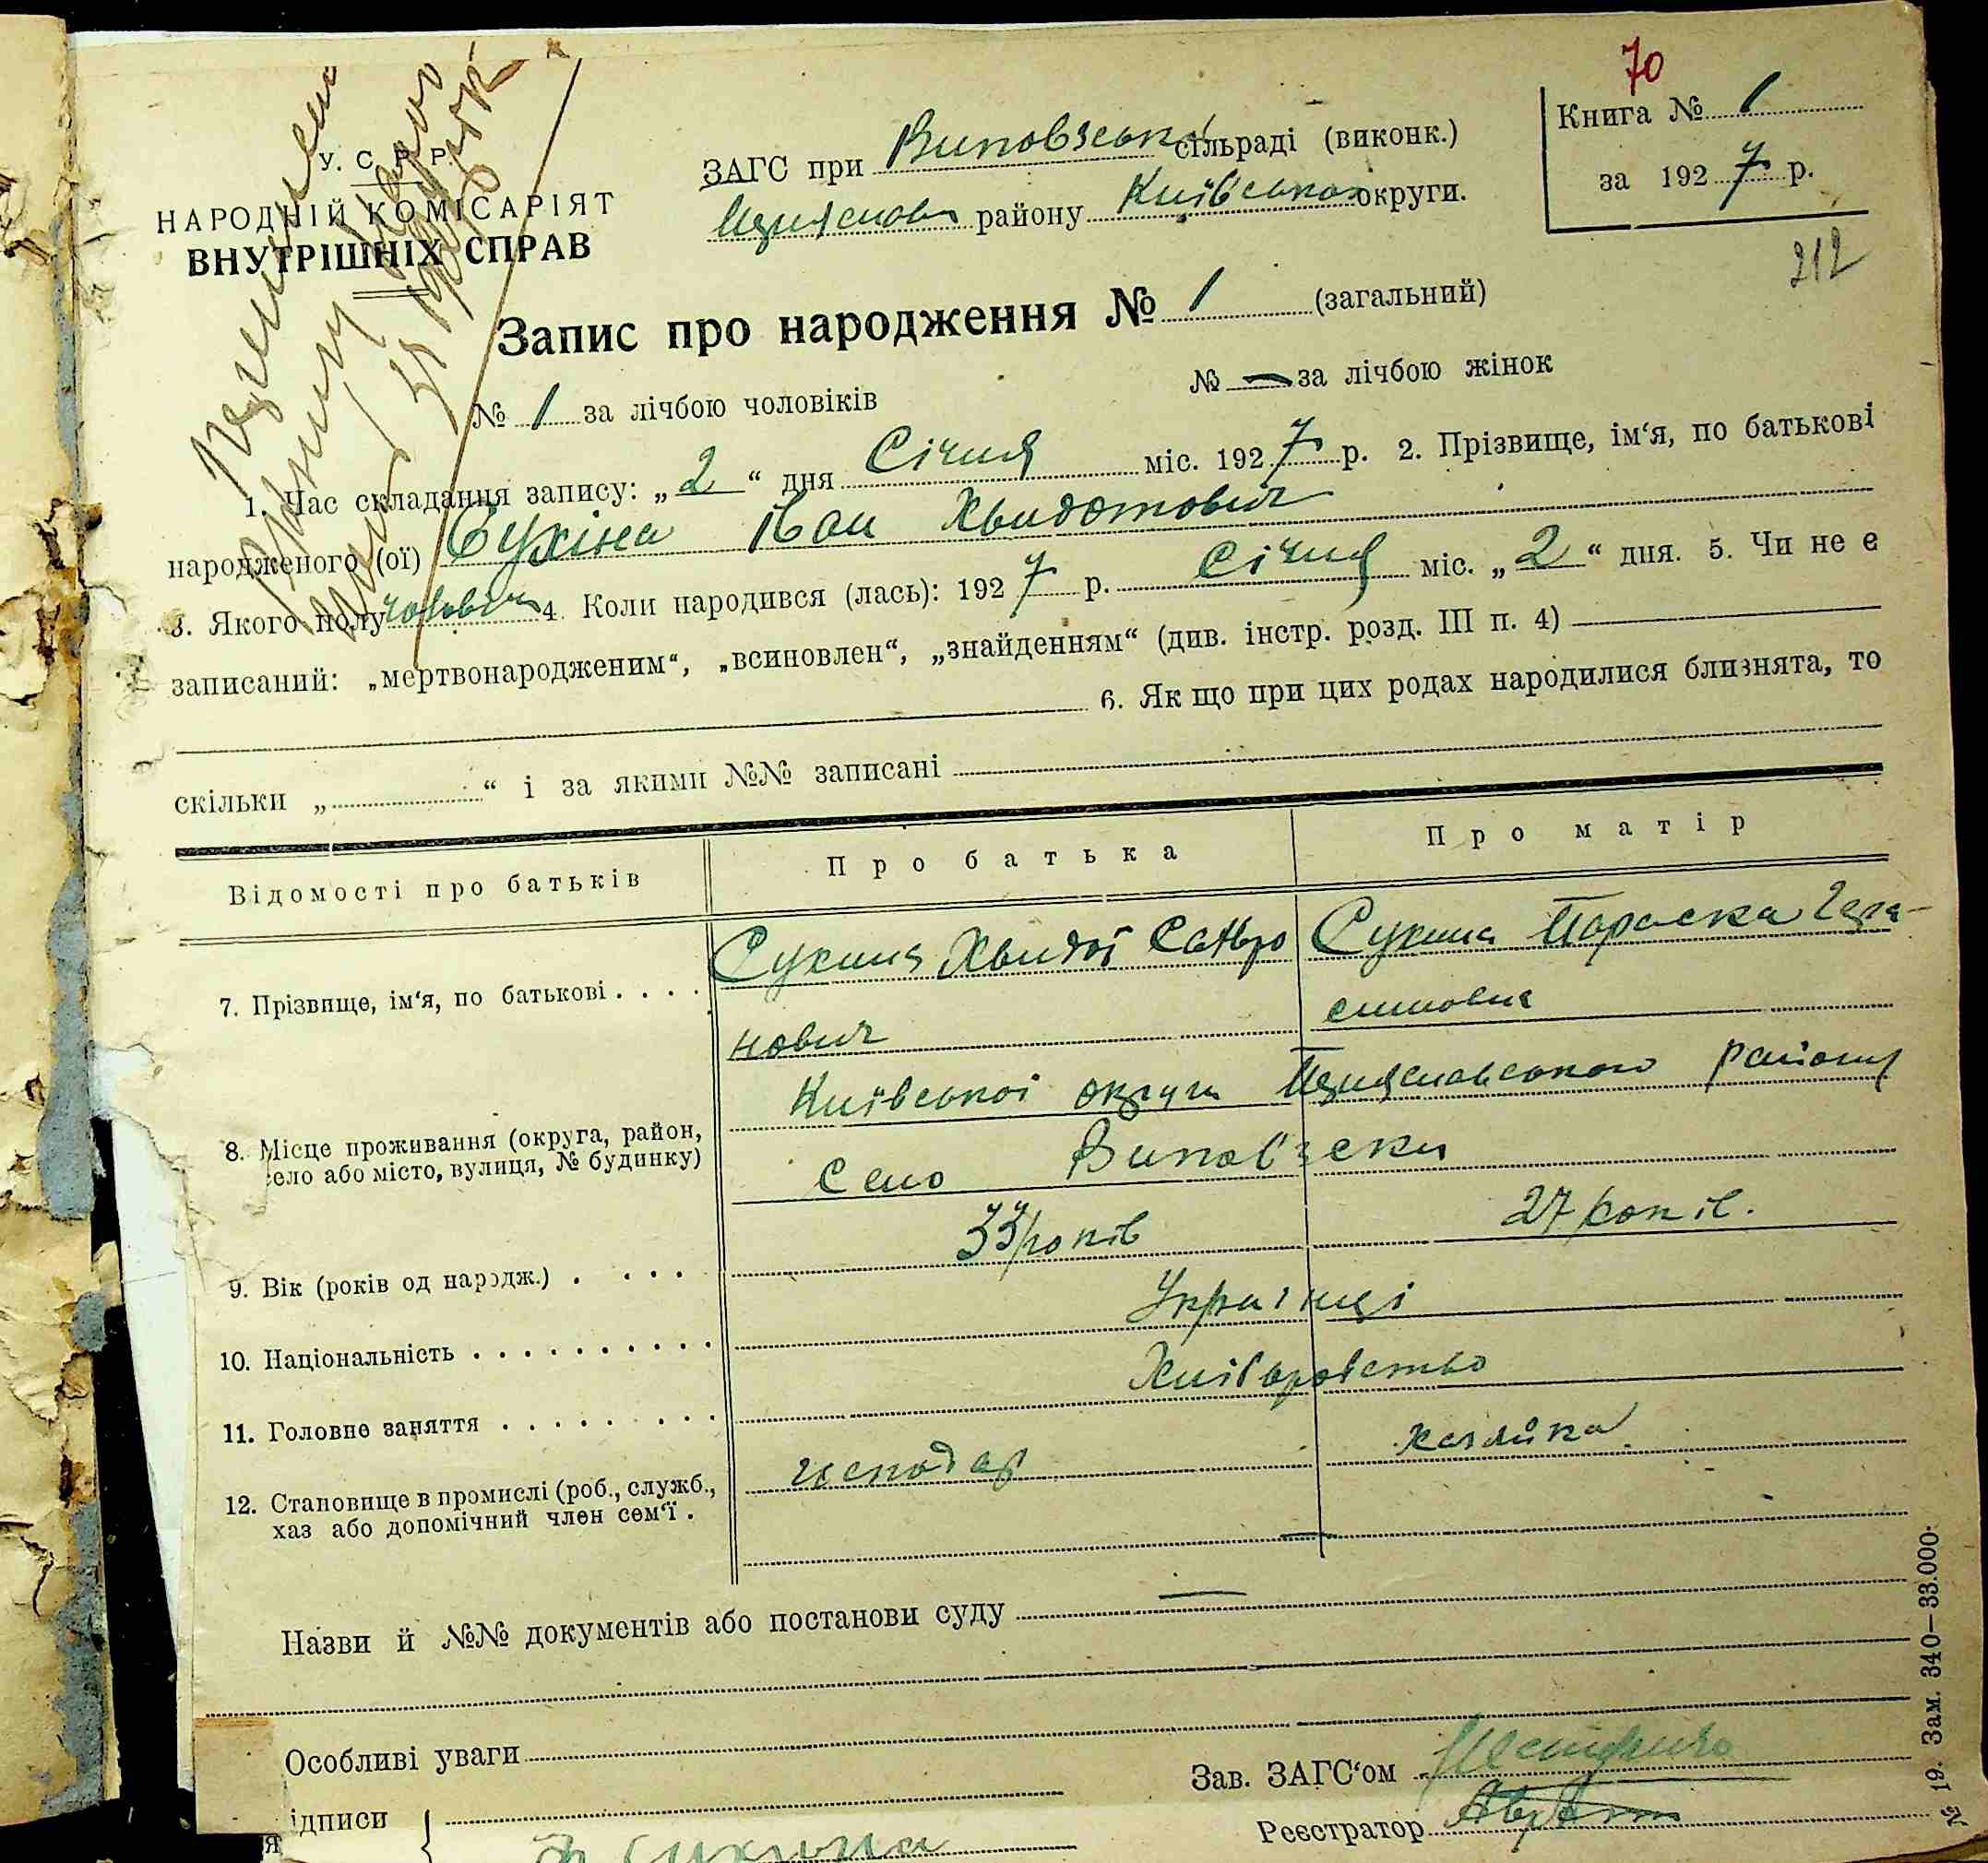 70
Книга № 1
за 1927 р.
212
У. С. Р. Р.
НАРОДНІЙ КОМІСАРІЯТ
ВНУТРІШНІХ СПРАВ
ЗАГС при Виповзській сільраді (виконк.)
району Київської округи.
Запис про народження № 1 (загальний)
№ 1 за лічбою чоловіків № — за лічбою жінок
1. Час складання запису: „2“ дня Січня міс. 1927 р. 2. Прізвище, ім‘я, по батькові
народженого (ої) Сухіна Іван Хвидотович
3. Якого полу 4. Коли народився (лась): 1927 р. Січня міс. „2“ дня. 5. Чи не є
записаний: „мертвонародженим“, „всиновлен“, „знайденням“ (див. інстр. розд. III п. 4)
6. Як що при цих родах народилися близнята, то
скільки „ “ і за якими №№ записані
Відомості про батьків Про батька Про матір
7. Прізвище, ім‘я, по батькові . . . . Сухина Хвидот Сахро Сухина Параска Гера-
нович симовна
Київської округи Переяславського району
8. Місце проживання (округа, район,
село або місто, вулиця, № будинку) Село Виповзки
9. Вік (років од народж.) . . . . 33 років 27 років.
10. Національність . . . . . . . . . . Українці
11. Головне заняття . . . . . . . . . Хліборобство
12. Становище в промислі (роб., служб., господар хазяйка
хаз або допомічний член сем‘ї .
Назви й №№ документів або постанови суду —
Особливі уваги
Зав. ЗАГС‘ом
ідписи
Реєстратор
я Сухина
19. Зам. 340—33.000.